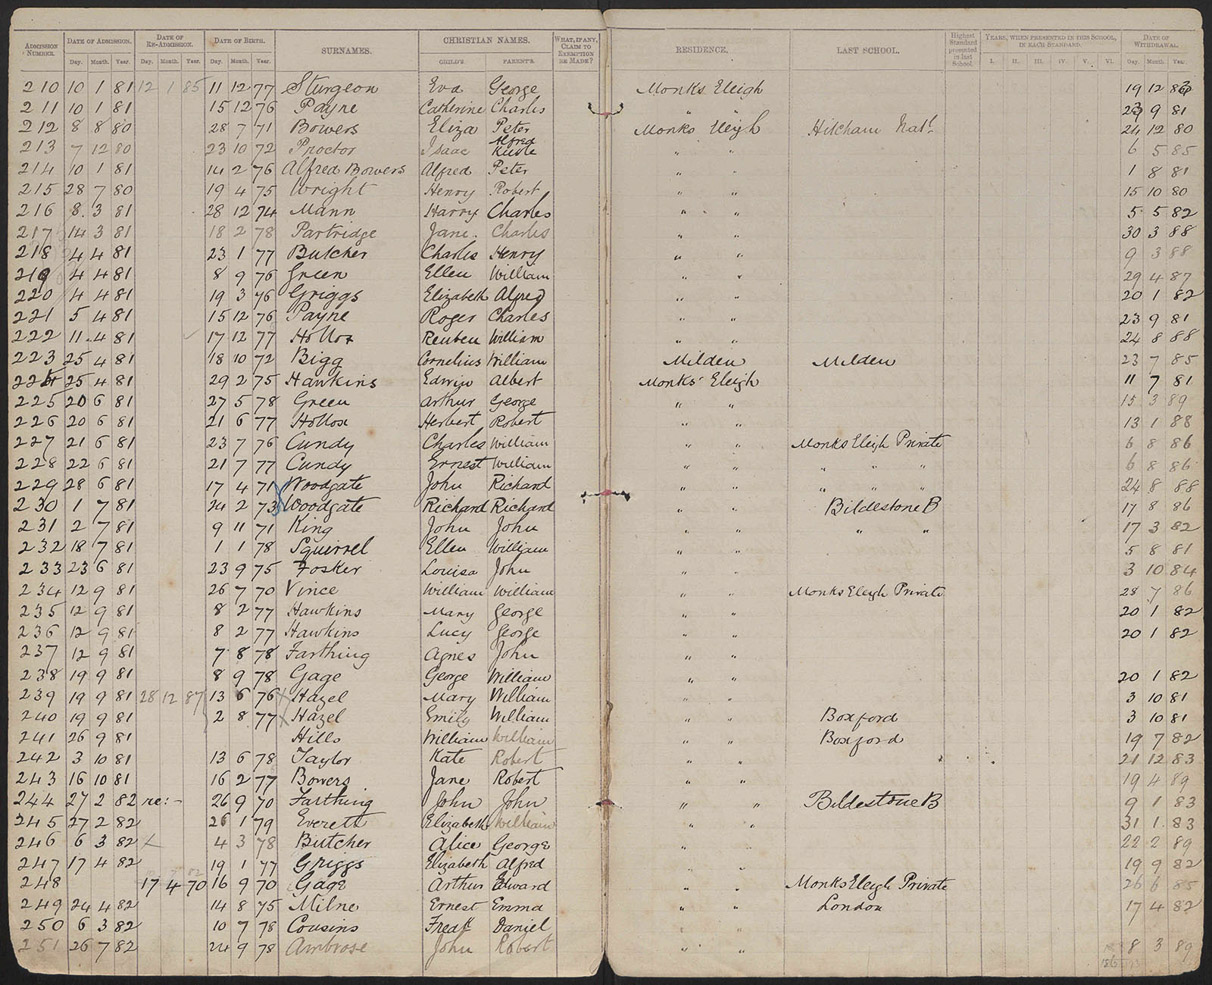 ADMISSION NUMBER. DATE OF ADMISSION. DATE OF RE-ADMISSION. DATE OF BIRTH. SURNAMES. CHRISTIAN NAMES. WHAT, IF ANY, CLAIM TO EXEMPTION BE MADE? RESIDENCE. LAST SCHOOL. Highest Standard presented at last School. YEARS, WHEN PRESENTED IN THIS SCHOOL, IN EACH STANDARD. DATE OF WITHDRAWAL.
Day. Month. Year. Day. Month. Year. Day. Month. Year. CHILD'S. PARENT'S. I. II. III. IV. V. VI. Day. Month. Year.
210 10 1 81 12 1 85 11 12 77 Sturgeon Eva George Monks Eleigh 19 12 86
211 10 1 81 15 12 76 Payne Catherine Charles 23 9 81
212 8 8 80 28 7 71 Bowers Eliza Peter Monks Eleigh Hitcham Natl. 24 12 80
213 7 12 80 23 10 72 Proctor Isaac Alfred " " 6 5 85
214 10 1 81 14 2 76 Alfred Bowers Alfred Peter " " 1 8 81
215 28 7 80 19 4 75 Wright Henry Robert " " 15 10 80
216 8 3 81 28 12 74 Mann Harry Charles " " 5 5 82
217 14 3 81 18 2 78 Partridge Jane Charles " " 30 3 88
218 4 4 81 23 1 77 Butcher Charles Henry " " 9 3 88
219 4 4 81 8 9 76 Green Ellen William " " 29 4 87
220 4 4 81 19 3 76 Griggs Elizabeth Alfred " " 20 1 82
221 5 4 81 15 12 76 Payne Roger Charles " " 23 9 81
222 11 4 81 17 12 77 Hollox Reuben William " " 24 8 88
223 25 4 81 18 10 72 Bigg Cornelius William Milden Milden 23 7 85
224 25 4 81 29 2 75 Hawkins Edwin Albert Monks Eleigh 11 7 81
225 20 6 81 27 5 78 Green Arthur George " " 15 3 89
226 20 6 81 21 6 77 Hollox Herbert Robert " " 13 1 88
227 21 6 81 23 7 76 Cundy Charles William " " Monks Eleigh Private 6 8 86
228 22 6 81 21 7 77 Cundy Ernest William " " " " " 6 8 86
229 28 6 81 17 4 71 Woodgate John Richard " " " " " 24 8 88
230 1 7 81 24 2 73 Woodgate Richard Richard " " Bildestone B 17 8 86
231 2 7 81 9 11 71 King John John " " " " 17 3 82
232 18 7 81 1 1 78 Squirrel Ellen William " " 5 8 81
233 23 6 81 23 9 75 Fosker Louisa John " " 3 10 84
234 12 9 81 26 7 70 Vince William William " " Monks Eleigh Private 28 7 86
235 12 9 81 8 2 77 Hawkins Mary George " " 20 1 82
236 12 9 81 8 2 77 Hawkins Lucy George " " 20 1 82
237 12 9 81 7 8 78 Farthing Agnes John " "
238 19 9 81 8 9 78 Gage George William " " 20 1 82
239 19 9 81 28 12 87 13 6 76 Hazel Mary William " " 3 10 81
240 19 9 81 2 8 77 Hazel Emily William " " Boxford 3 10 81
241 26 9 81 Hills William William " " Boxford 19 7 82
242 3 10 81 13 6 78 Taylor Kate Robert " " 21 12 83
243 16 10 81 16 2 77 Bowers Jane Robert " " 19 4 89
244 27 2 82 re:- 26 9 70 Farthing John John " " Bildestone B 9 1 83
245 27 2 82 26 1 79 Evereth Elizabeth William " " 31 1 83
246 6 3 82 4 3 78 Butcher Alice George " " 22 2 89
247 17 4 82 19 1 77 Griggs Elizabeth Alfred " " 19 9 82
248 17 4 70 16 9 70 Gage Arthur Edward " " Monks Eleigh Private 26 6 85
249 24 4 82 14 8 75 Milne Ernest Emma " " London 17 4 82
250 6 3 82 10 7 78 Cousins Fredk Daniel " "
251 26 7 82 24 9 78 Ambrose John Robert " " 8 3 89